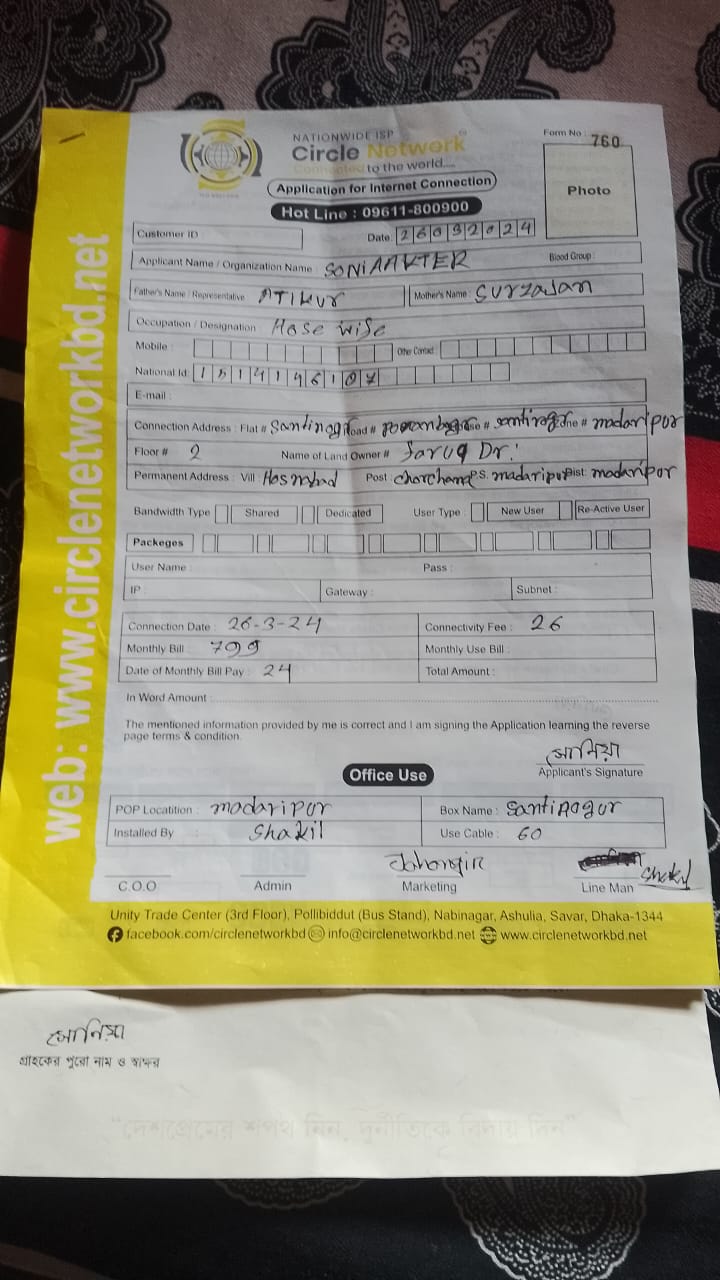 web: www.circlenetworkbd.net
NATIONWIDE ISP
Circle Network
Connected to the world....
Application for Internet Connection
Hot Line : 09611-800900
Form No : 760
Photo
Customer ID
Date 26032024
Applicant Name / Organization Name : SONIAAKTER Blood Group :
Father's Name / Representative ATIKUr Mother's Name :
Occupation / Designation : Hose wise
Mobile : Other Contact :
National Id:
E-mail :
Connection Address : Flat # # madaripur
Floor # 2 Name of Land Owner # Faruq Dr.
Permanent Address : Vill: Post: P.S. madaripur Dist: madaripor
Bandwidth Type Shared Dedicated User Type : New User Re-Active User
Packeges
User Name : Pass :
IP : Gateway : Subnet :
Connection Date : 26-3-24 Connectivity Fee : 26
Monthly Bill : 799 Monthly Use Bill :
Date of Monthly Bill Pay : 24 Total Amount :
In Word Amount :
The mentioned information provided by me is correct and I am signing the Application learning the reverse
page terms & condition.
সোনিয়া
Applicant's Signature
Office Use
POP Locatition : madaripur Box Name : Santinogur
Installed By : Shakil Use Cable : 60
Jahangir
C.O.O Admin Marketing Line Man
Unity Trade Center (3rd Floor), Pollibiddut (Bus Stand), Nabinagar, Ashulia, Savar, Dhaka-1344
facebook.com/circlenetworkbd info@circlenetworkbd.net www.circlenetworkbd.net
সোনিয়া
গ্রাহকের পুরো নাম ও স্বাক্ষর
"দেশপ্রেমের শপথ নিন, দুর্নীতিকে বিদায় দিন"